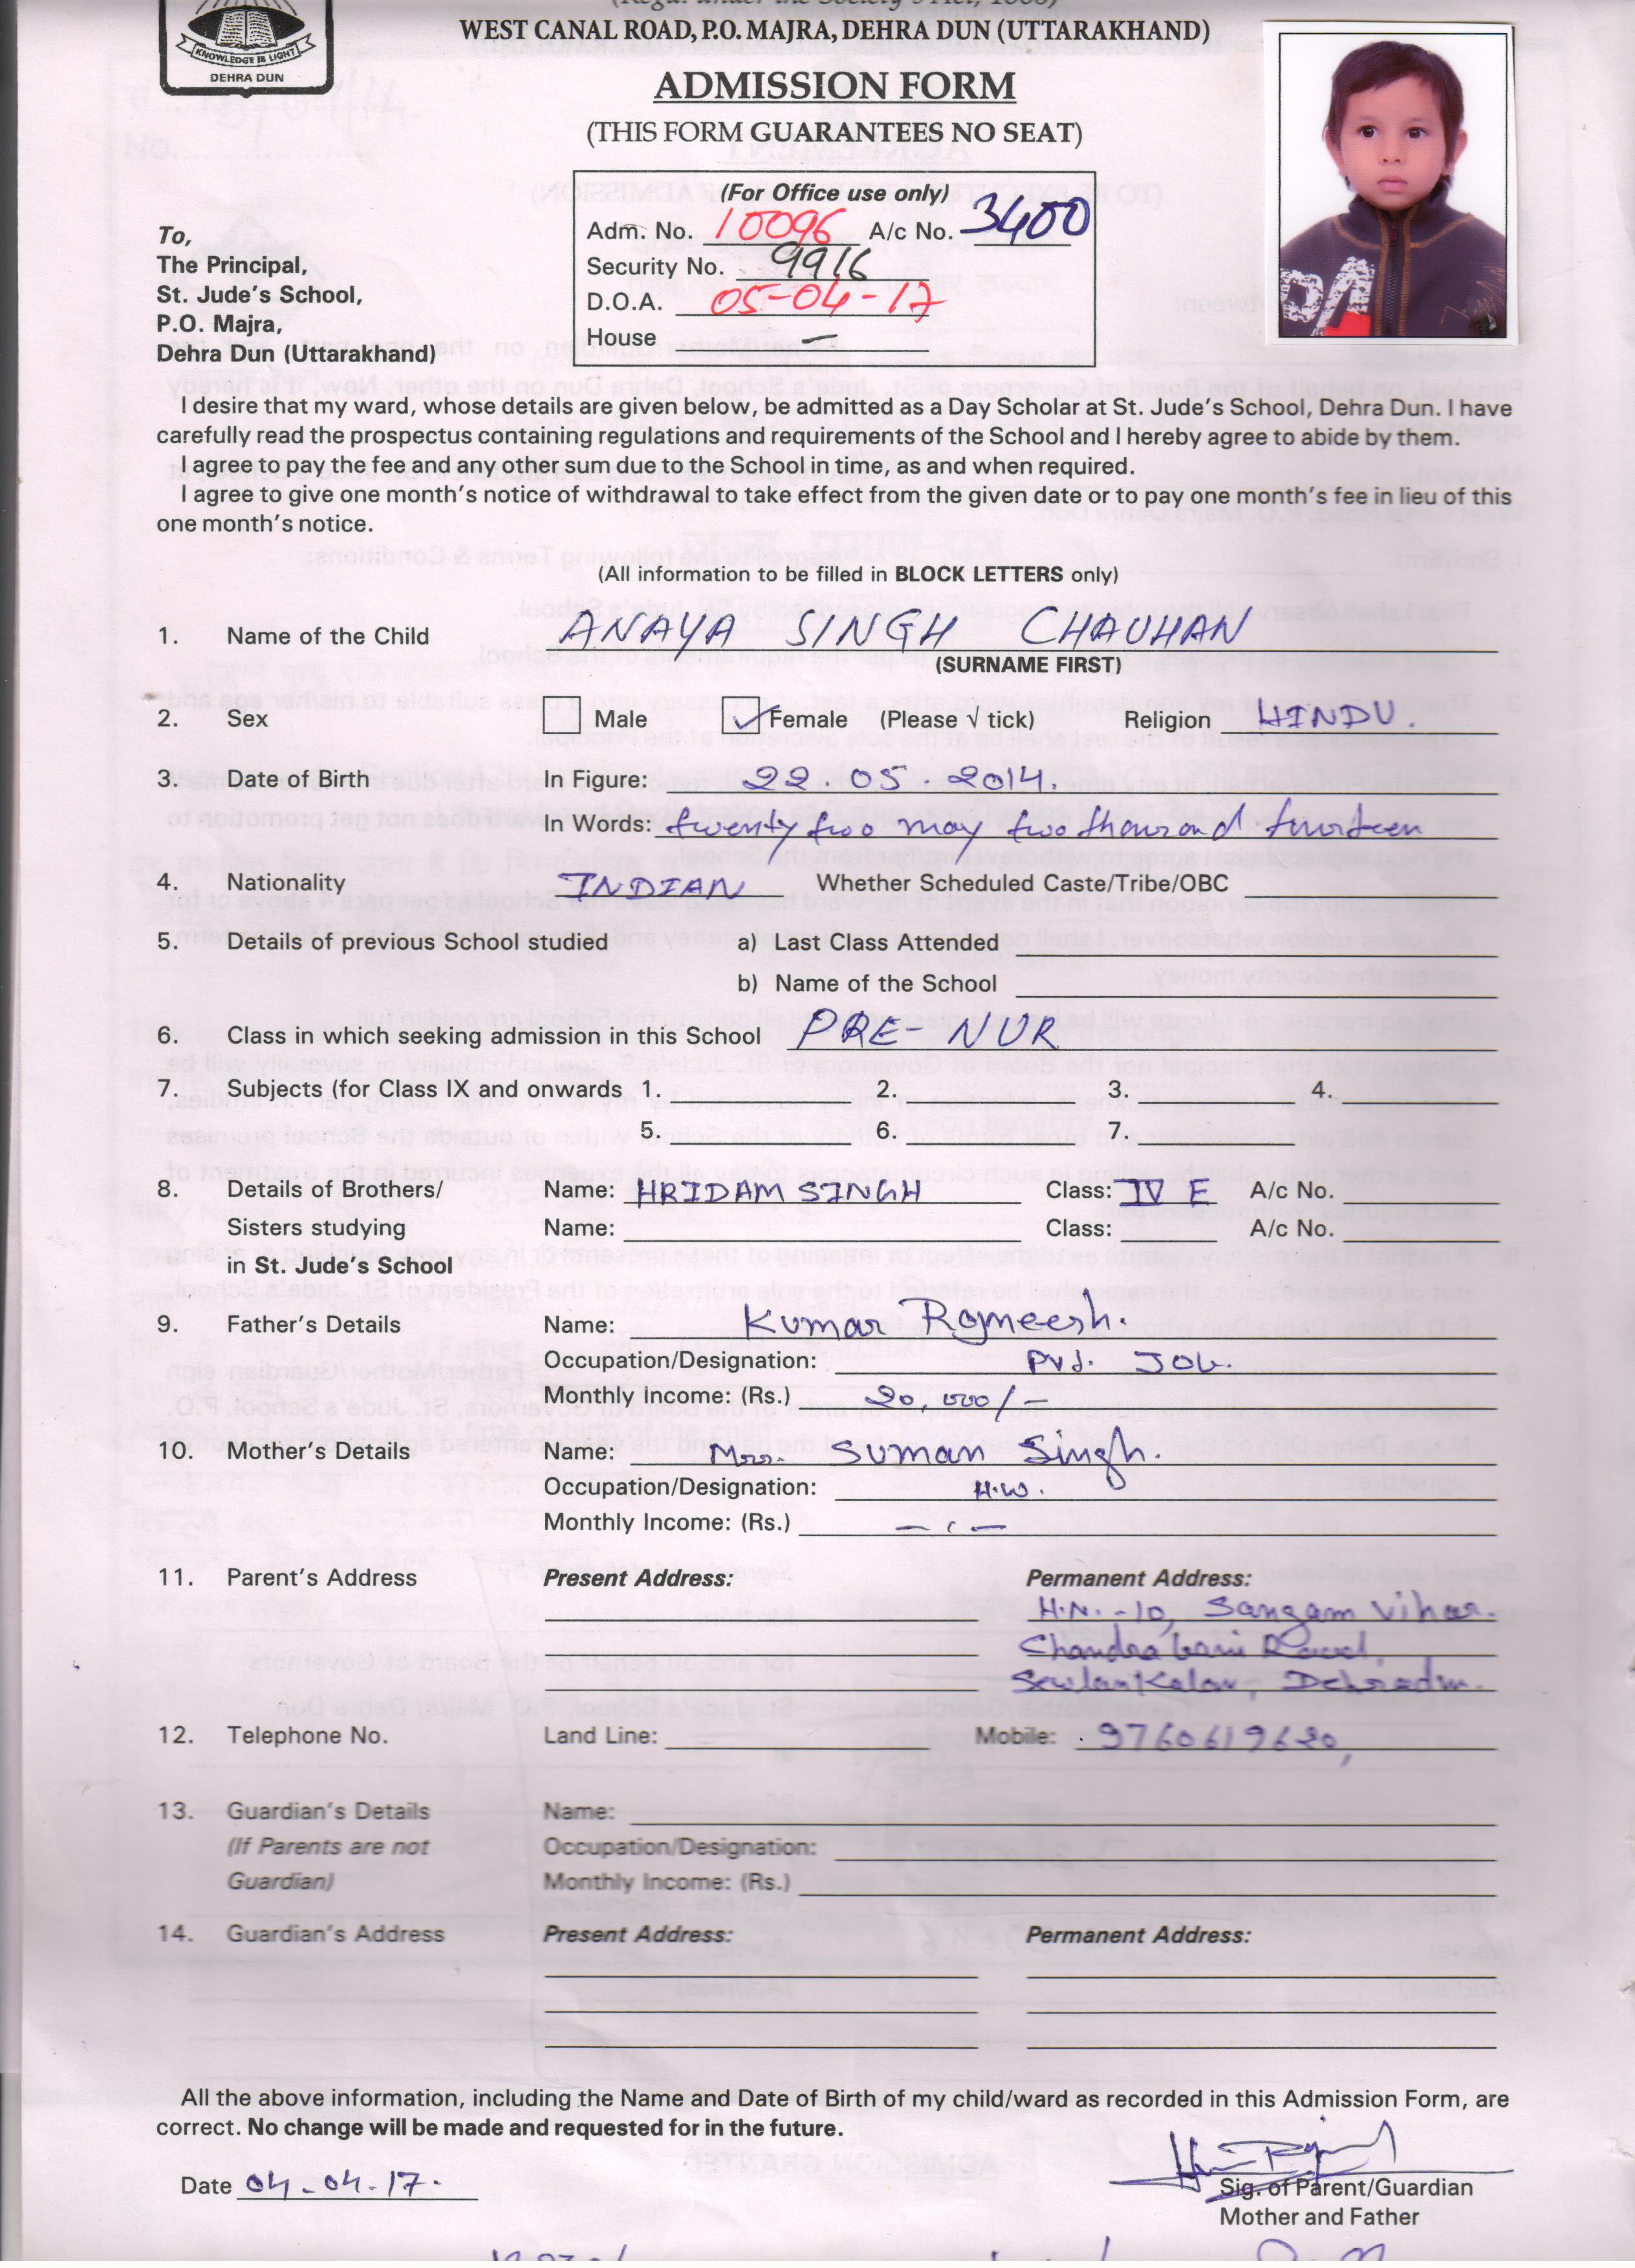 KNOWLEDGE IS LIGHT
DEHRA DUN
WEST CANAL ROAD, P.O. MAJRA, DEHRA DUN (UTTARAKHAND)
ADMISSION FORM
(THIS FORM GUARANTEES NO SEAT)
(For Office use only)
Adm. No. 10096 A/c No. 3400
Security No. 9916
D.O.A. 05-04-17
House —
To,
The Principal,
St. Jude's School,
P.O. Majra,
Dehra Dun (Uttarakhand)
I desire that my ward, whose details are given below, be admitted as a Day Scholar at St. Jude's School, Dehra Dun. I have
carefully read the prospectus containing regulations and requirements of the School and I hereby agree to abide by them.
I agree to pay the fee and any other sum due to the School in time, as and when required.
I agree to give one month's notice of withdrawal to take effect from the given date or to pay one month's fee in lieu of this
one month's notice.
(All information to be filled in BLOCK LETTERS only)
1. Name of the Child ANAYA SINGH CHAUHAN
(SURNAME FIRST)
2. Sex Male ✓ Female (Please √ tick) Religion HINDU.
3. Date of Birth In Figure: 22.05.2014.
In Words: twenty two may two thousand fourteen
4. Nationality INDIAN Whether Scheduled Caste/Tribe/OBC
5. Details of previous School studied a) Last Class Attended
b) Name of the School
6. Class in which seeking admission in this School PRE-NUR
7. Subjects (for Class IX and onwards 1. 2. 3. 4.
5. 6. 7.
8. Details of Brothers/ Name: HRIDAM SINGH Class: IV E A/c No.
Sisters studying Name: Class: A/c No.
in St. Jude's School
9. Father's Details Name: Kumar Rajneesh.
Occupation/Designation: Pvt. Job.
Monthly Income: (Rs.) 20,000/-
10. Mother's Details Name: Mrs. Suman Singh.
Occupation/Designation: H.W.
Monthly Income: (Rs.)
11. Parent's Address Present Address: Permanent Address:
H.N.-10, Sangam Vihar.
Chandrabani Road,
Sewlankalan, Dehradun.
12. Telephone No. Land Line: Mobile: 9760619620,
13. Guardian's Details Name:
(If Parents are not Occupation/Designation:
Guardian) Monthly Income: (Rs.)
14. Guardian's Address Present Address: Permanent Address:
All the above information, including the Name and Date of Birth of my child/ward as recorded in this Admission Form, are
correct. No change will be made and requested for in the future.
Date 04.04.17.
Sig. of Parent/Guardian
Mother and Father